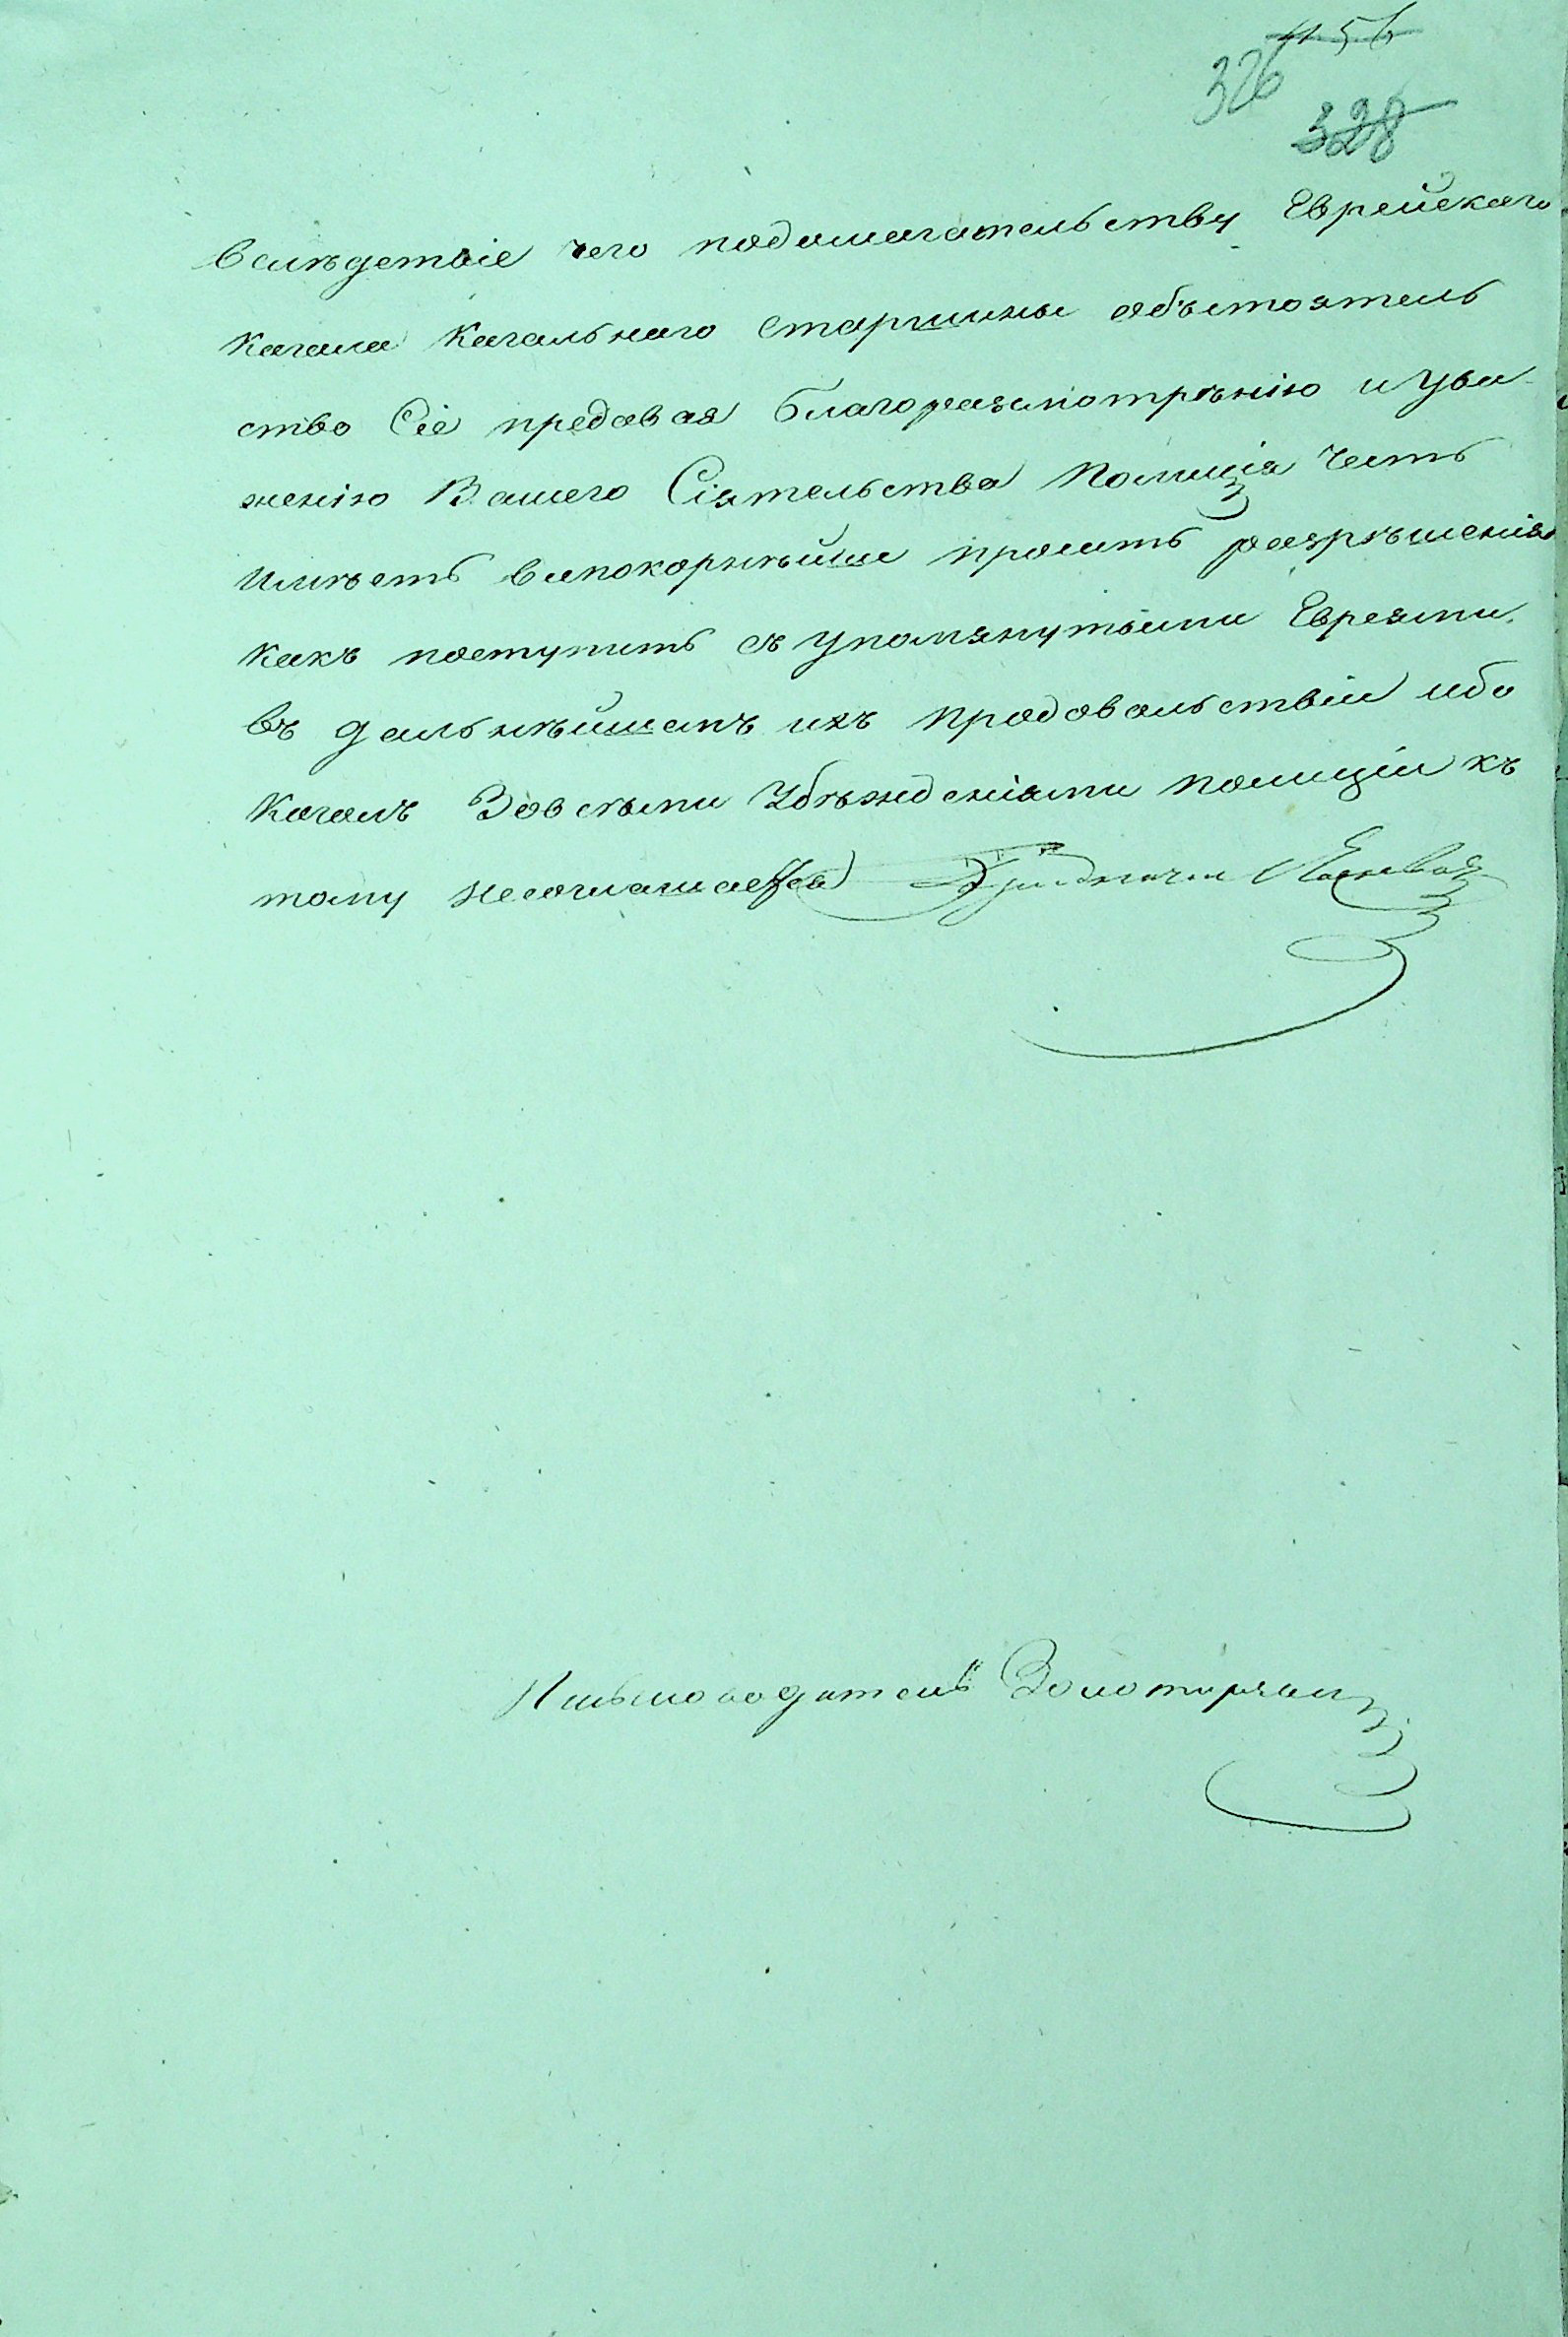 456
326
328
Вслѣдствіе чего подомагательству Еврейскаго
Кагала Кагальнаго Старшины обстоятель
ство Сіе предавая благоразсмотрѣнію и Ува
женію Вашего Сіятельства Полиція Честь
имѣетъ всепокорнѣйше просить разрѣшенія
какъ поступить съ упомянутыми Евреями.
въ дальнѣйшемъ ихъ продовольствіи ибо
Кагалъ Зовсѣми Убѣжденіями полиціи къ
тому несоглашается
Письмоводитель